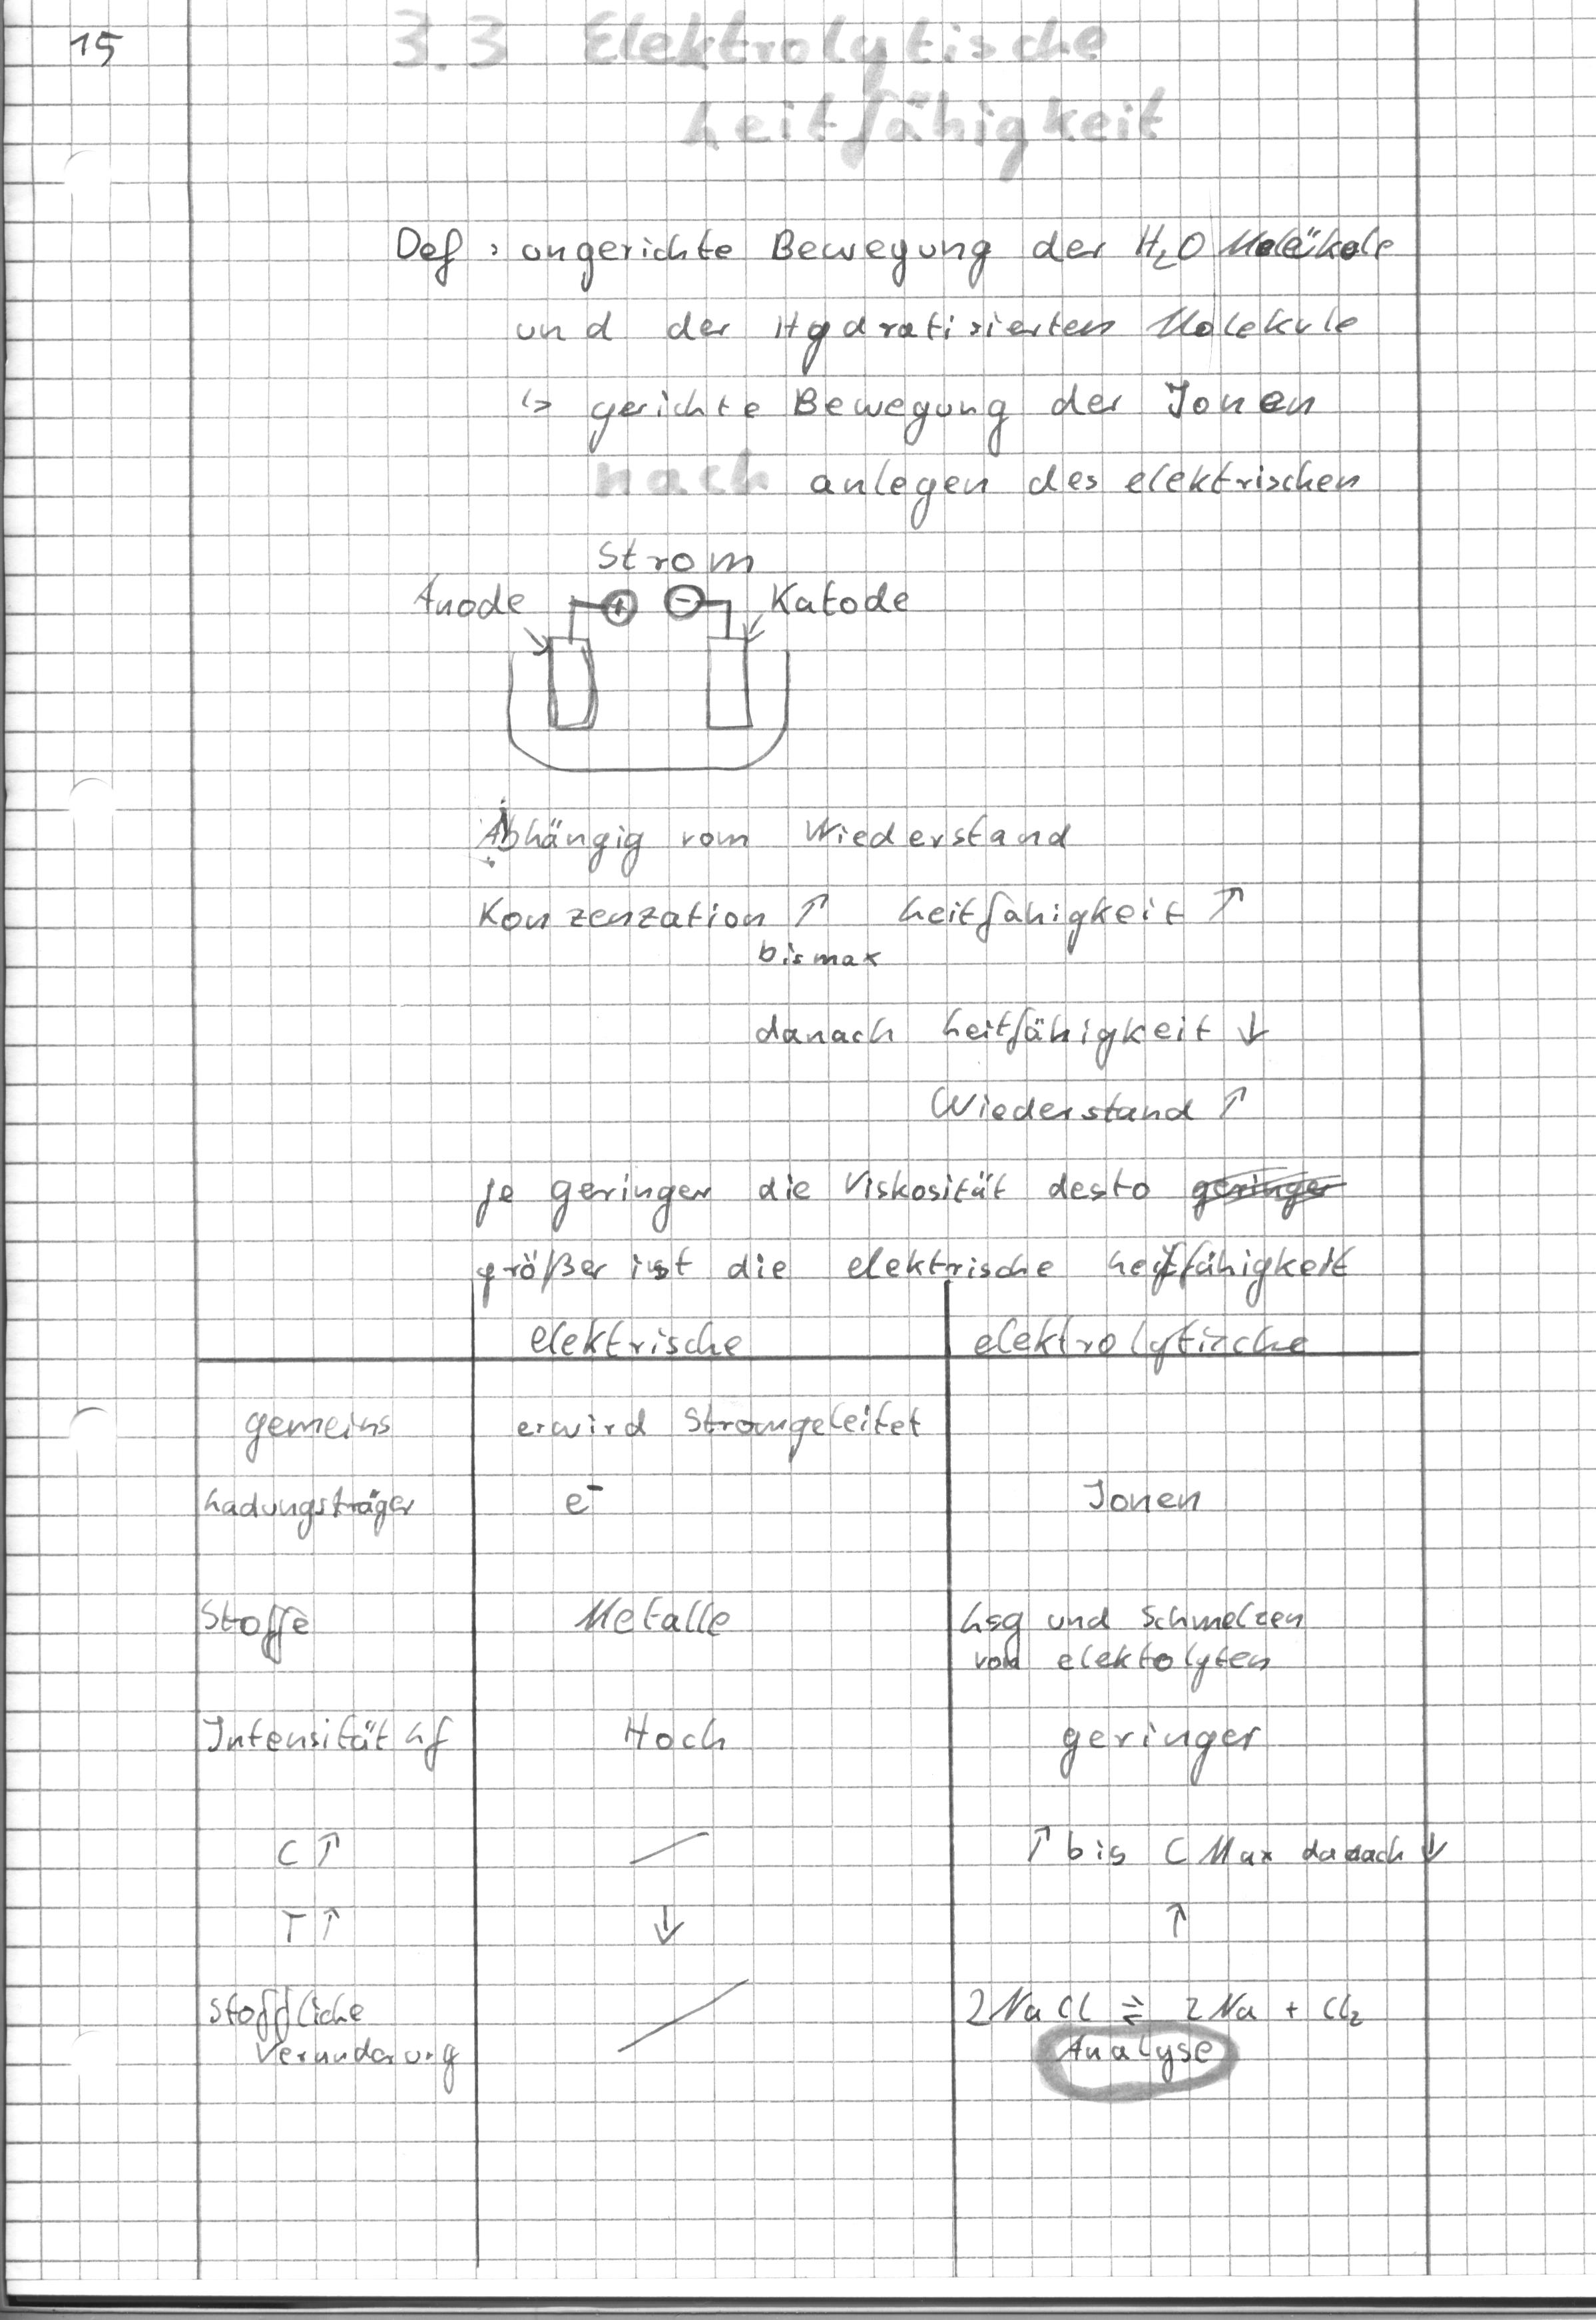 15
3.3 Elektrolytische
Leitfähigkeit
Def: ungerichte Bewegung der H₂O Moleküle
und der Hydratisierten Moleküle
↳ gerichte Bewegung der Ionen
nach anlegen des elektrischen
Strom
Anode + - Katode
Abhängig vom Wiederstand
Konzenzation ↑ Leitfahigkeit ↑
bis max
danach Leitfähigkeit ↓
Wiederstand ↑
je geringer die Viskosität desto geringer
größer ist die elektrische Leitfähigkeit
elektrische elektrolytische
gemeins es wird Strom geleitet
Ladungsträger e⁻ Ionen
Stoffe Metalle Lsg und Schmelzen
von elektolyten
Intensität Lf Hoch geringer
C ↑ — ↑ bis C Max danach ↓
T ↑ ↓ ↑
Stoffliche 2NaCl ⇌ 2Na + Cl₂
Veränderung — Analyse